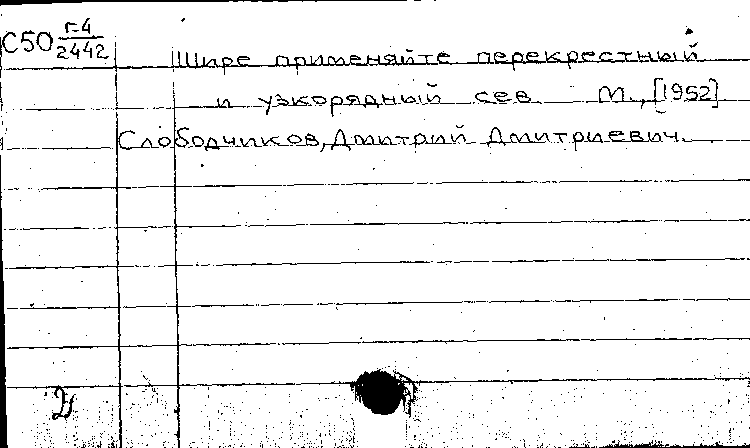 С50 г-4
2442
Шире применяйте перекрестный
и узкорядный сев М., [1952]
Слободчиков, Дмитрий Дмитриевич.
2